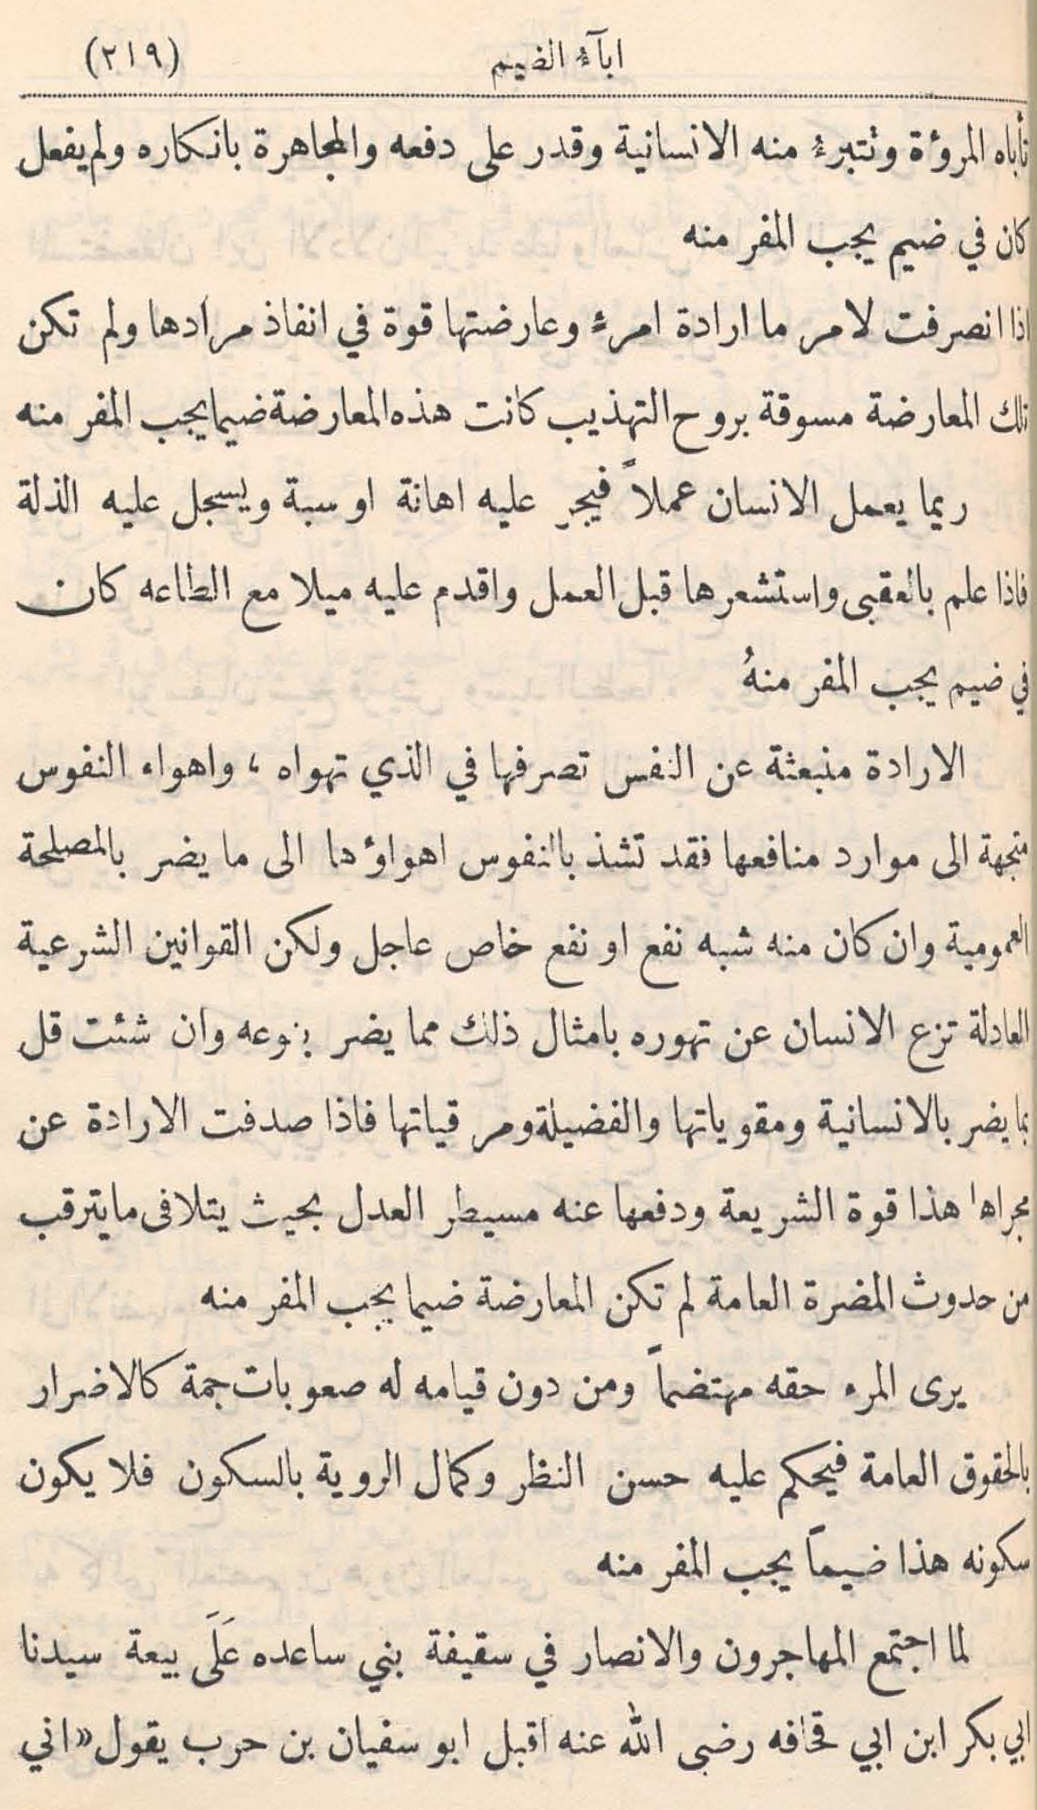 ابآء الضيم (٢١٩)
تأباه المروءة وتتبرء منه الانسانية وقدر على دفعه والمجاهرة بانكاره ولم يفعل
كان في ضيم يجب المفر منه
اذا انصرفت لامر ما ارادة امرء وعارضتها قوة في انفاذ مرادها ولم تكن
تلك المعارضة مسوقة بروح التهذيب كانت هذه المعارضة ضيما يجب المفر منه
ربما يعمل الانسان عملاً فيجر عليه اهانة او سبة ويسجل عليه الذلة
فاذا علم بالعقبى واستشعرها قبل العمل واقدم عليه ميلا مع الطاعه كان
في ضيم يجب المفر منهُ
الارادة منبعثة عن النفس تصرفها في الذي تهواه ، واهواء النفوس
متجهة الى موارد منافعها فقد تشذ بالنفوس اهواؤها الى ما يضر بالمصلحة
العمومية وان كان منه شبه نفع او نفع خاص عاجل ولكن القوانين الشرعية
العادلة تزع الانسان عن تهوره بامثال ذلك مما يضر بنوعه وان شئت قل
بما يضر بالانسانية ومقوياتها والفضيلة ومرقياتها فاذا صدفت الارادة عن
مجراها هذا قوة الشريعة ودفعها عنه مسيطر العدل بحيث يتلافى ما يترقب
من حدوث المضرة العامة لم تكن المعارضة ضيما يجب المفر منه
يرى المرء حقه مهتضماً ومن دون قيامه له صعوبات جمة كالاضرار
بالحقوق العامة فيحكم عليه حسن النظر وكمال الروية بالسكون فلا يكون
سكونه هذا ضيماً يجب المفر منه
لما اجتمع المهاجرون والانصار في سقيفة بني ساعده عَلَى بيعة سيدنا
ابي بكر ابن ابي قحافه رضى الله عنه اقبل ابو سفيان بن حرب يقول «اني